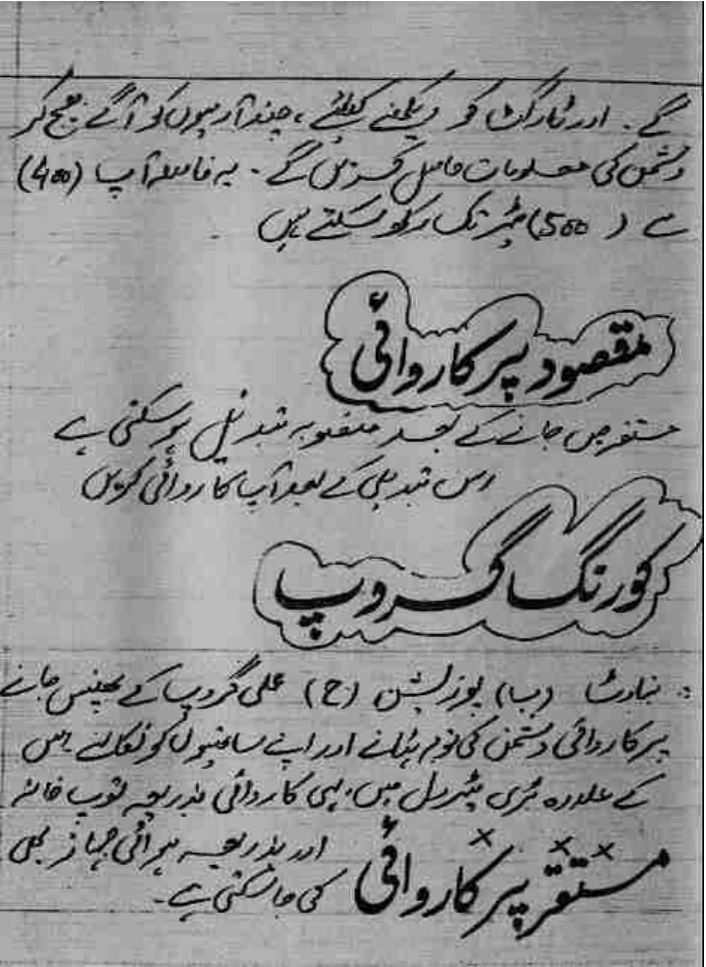 گے۔ اور ٹارگٹ کو دیکھنے کیلئے، چند آدمیوں کو آگے بھیج کر
دشمن کی معلومات حاصل کریں گے۔ یہ فاصلہ آپ (400)
سے (500) میٹر تک رکھ سکتے ہیں
مقصود پر کاروائی
مستقر میں جانے کے بعد منصوبہ تبدیل ہو سکتی ہے
اس تبدیلی کے بعد آپ کاروائی کریں
کورنگ گروپ
(ب) پوزیشن (ح) عملی گروپ کے پھنس جانے
پر کاروائی دشمن کی توجہ ہٹانے اور اپنے ساتھیوں کو نکالنے اس
کے علاوہ فری پٹرول میں، یہی کاروائی بذریعہ توپ خانہ
اور بذریعہ ہوائی جہاز بھی
کی جا سکتی ہے۔
مستقر پر کاروائی